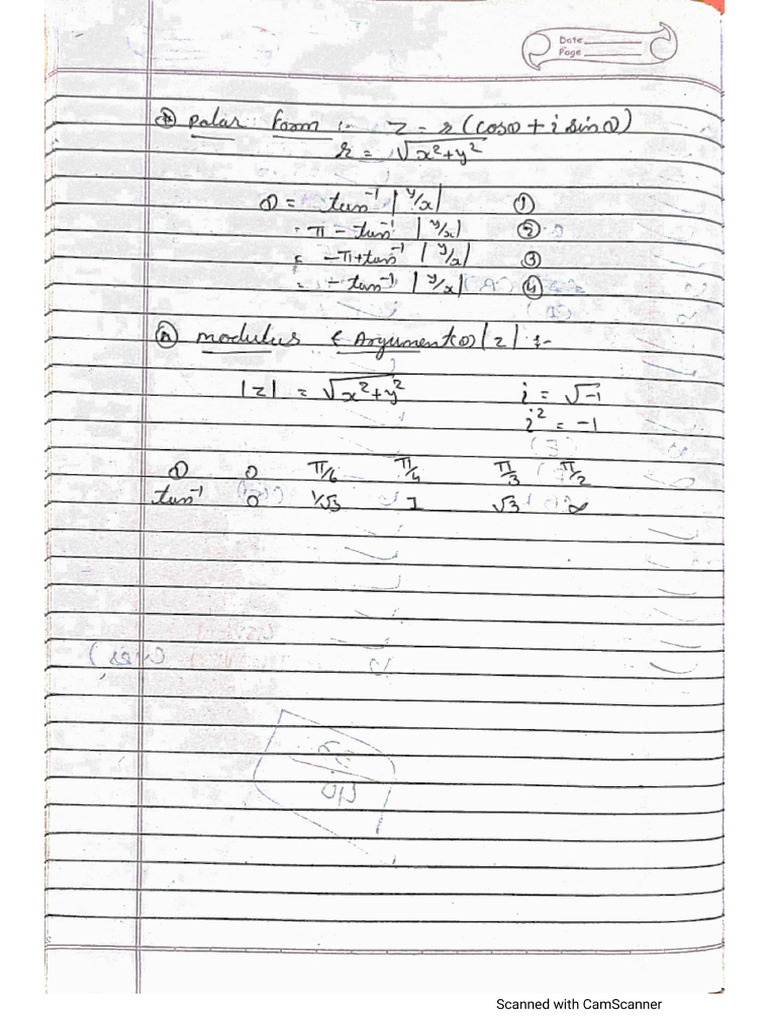 Date
Page
* Polar Form :- z = r (cosθ + i sinθ)
r = √x²+y²
θ = tan⁻¹ |y/x| ①
= π - tan⁻¹ |y/x| ②
= -π+tan⁻¹ |y/x| ③
= - tan⁻¹ |y/x| ④
modulus & Argument(θ) |z| :-
|z| = √x²+y² i = √-1
i² = -1
θ 0 π/6 π/4 π/3 π/2
tan⁻¹ 0 1/√3 1 √3 ∞
Scanned with CamScanner